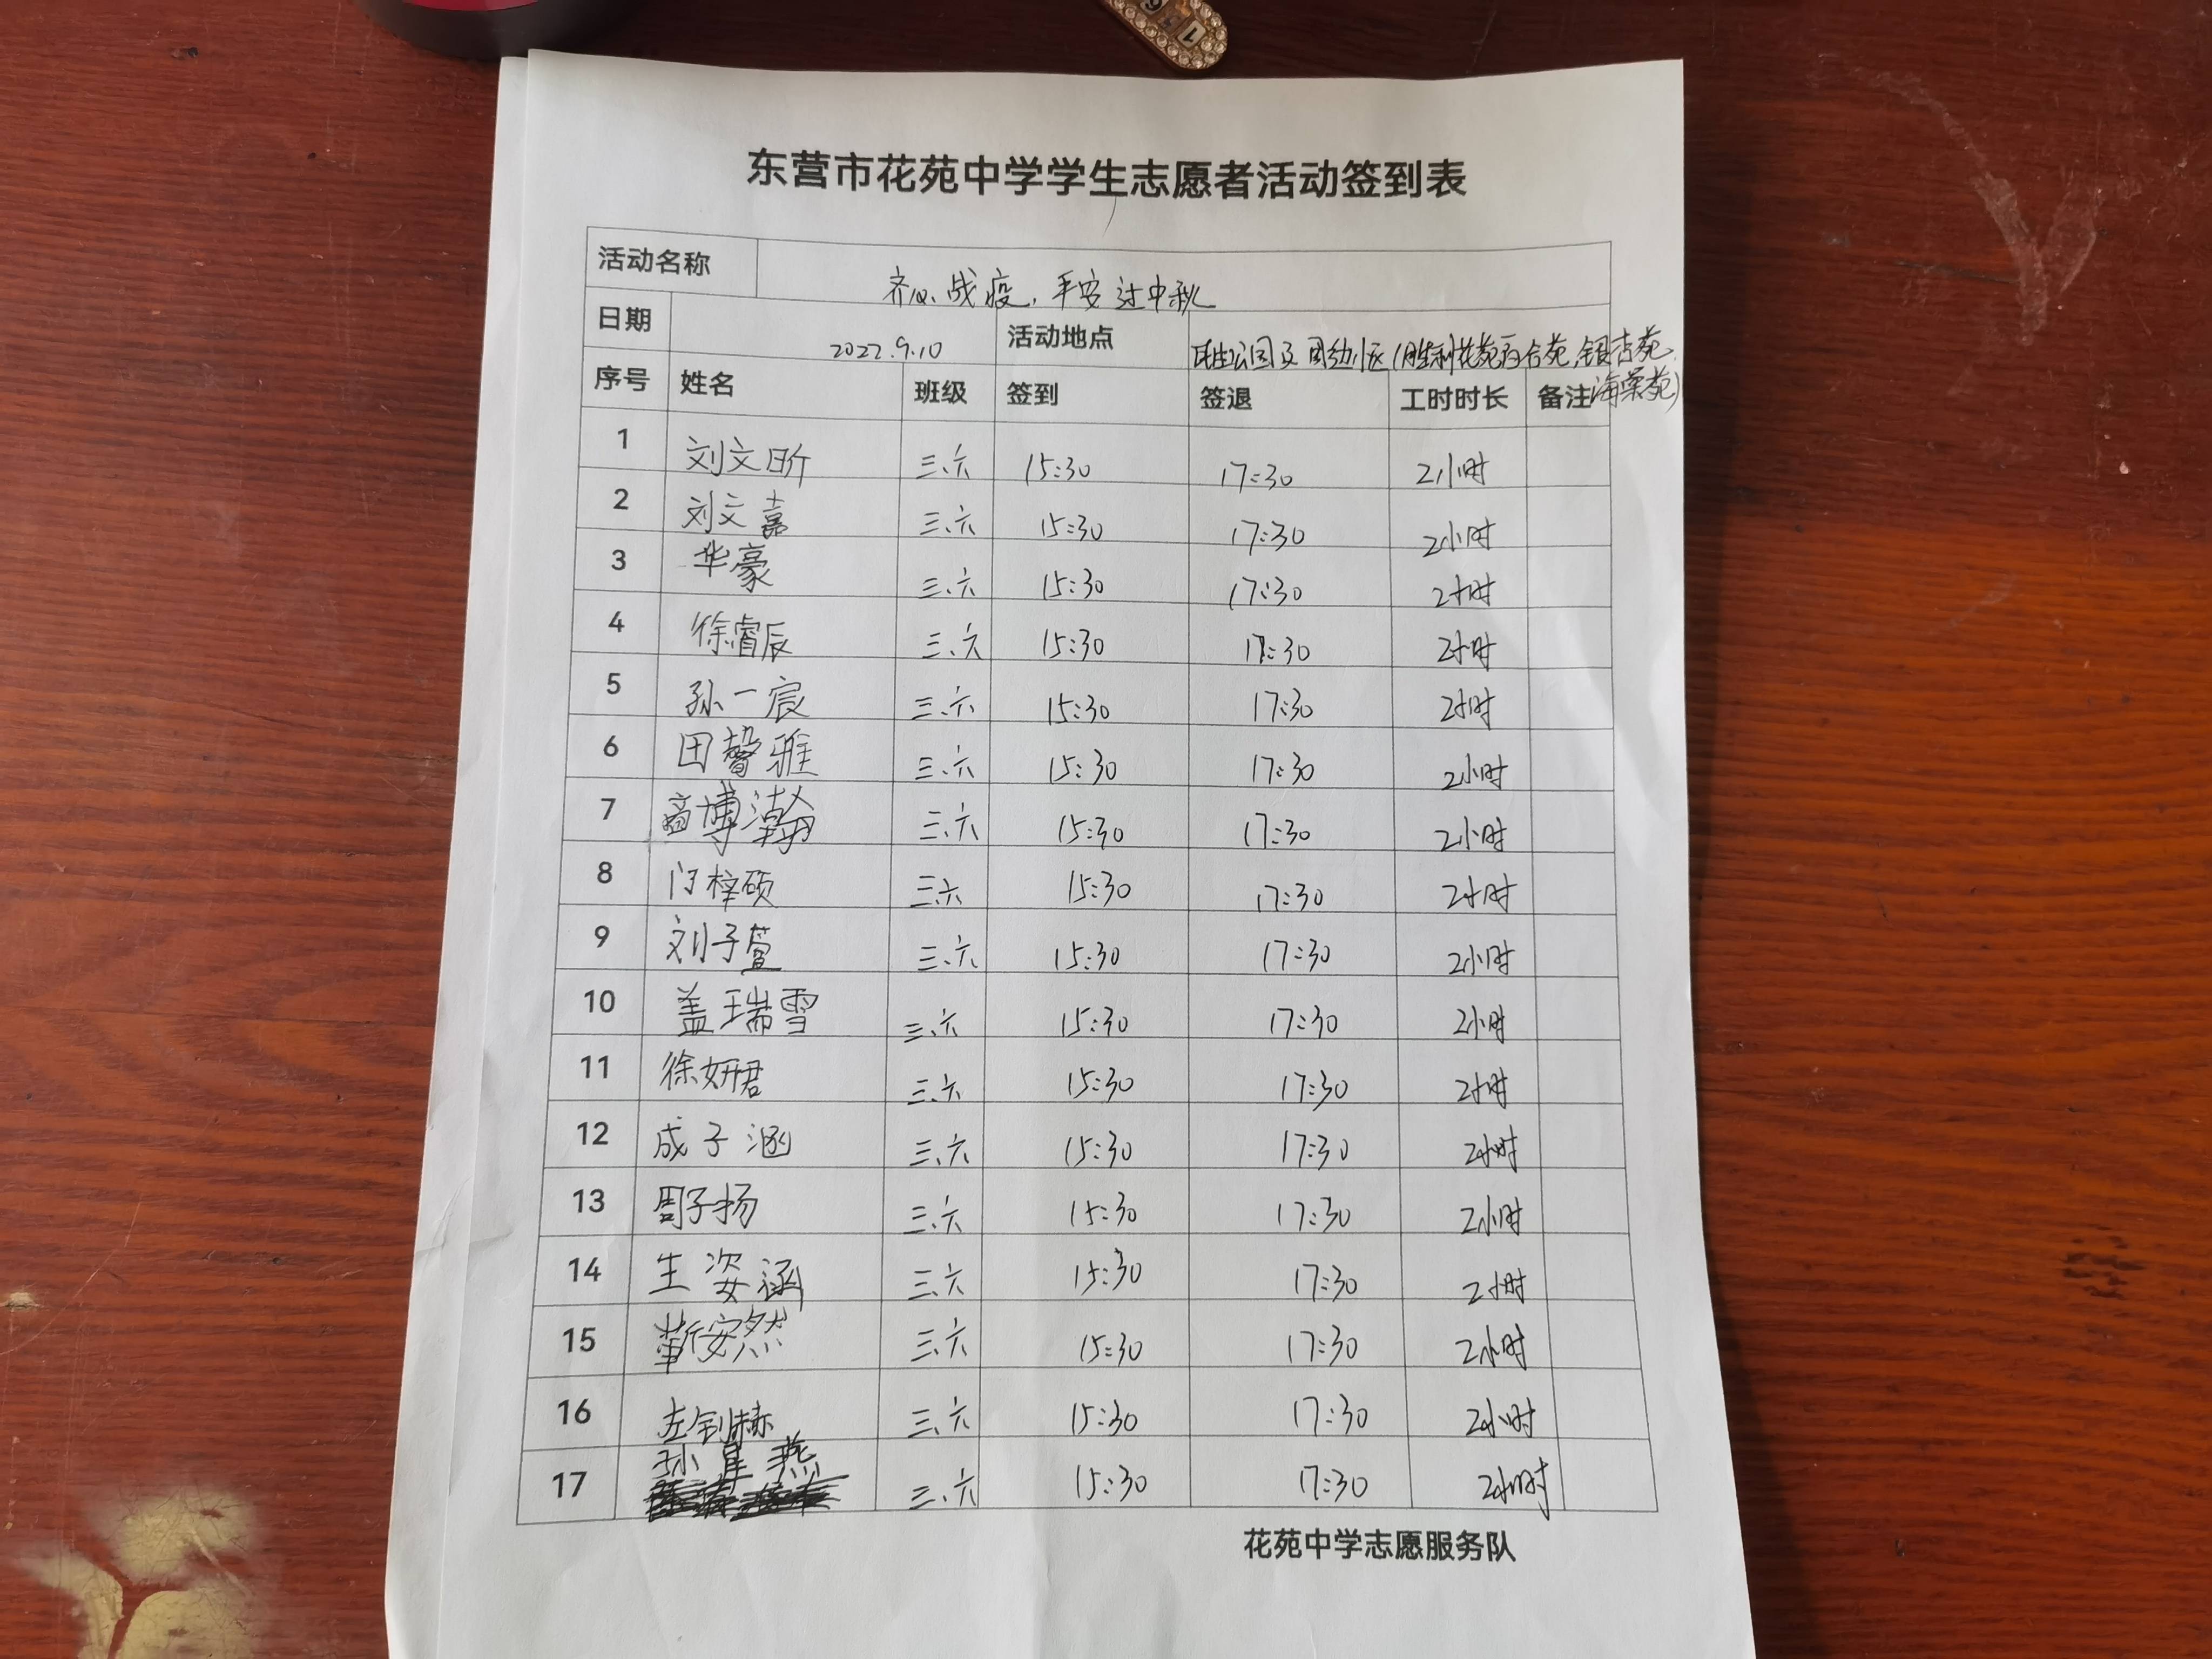 东营市花苑中学学生志愿者活动签到表
活动名称 齐心战疫,平安过中秋
日期 2022.9.10 活动地点 民生公园及周边小区(胜利花苑百合苑,银杏苑,海棠苑)
序号 姓名 班级 签到 签退 工时时长 备注
1 刘文昕 三、六 15:30 17:30 2小时
2 刘文嘉 三、六 15:30 17:30 2小时
3 华豪 三、六 15:30 17:30 2小时
4 徐睿辰 三、六 15:30 17:30 2小时
5 孙一宸 三、六 15:30 17:30 2小时
6 田馨雅 三、六 15:30 17:30 2小时
7 商博瀚 三、六 15:30 17:30 2小时
8 门梓硕 三、六 15:30 17:30 2小时
9 刘子萱 三、六 15:30 17:30 2小时
10 盖瑞雪 三、六 15:30 17:30 2小时
11 徐妍君 三、六 15:30 17:30 2小时
12 成子涵 三、六 15:30 17:30 2小时
13 周子扬 三、六 15:30 17:30 2小时
14 生姿涵 三、六 15:30 17:30 2小时
15 靳安然 三、六 15:30 17:30 2小时
16 三、六 15:30 17:30 2小时
17 孙星燕 三、六 15:30 17:30 2小时
花苑中学志愿服务队